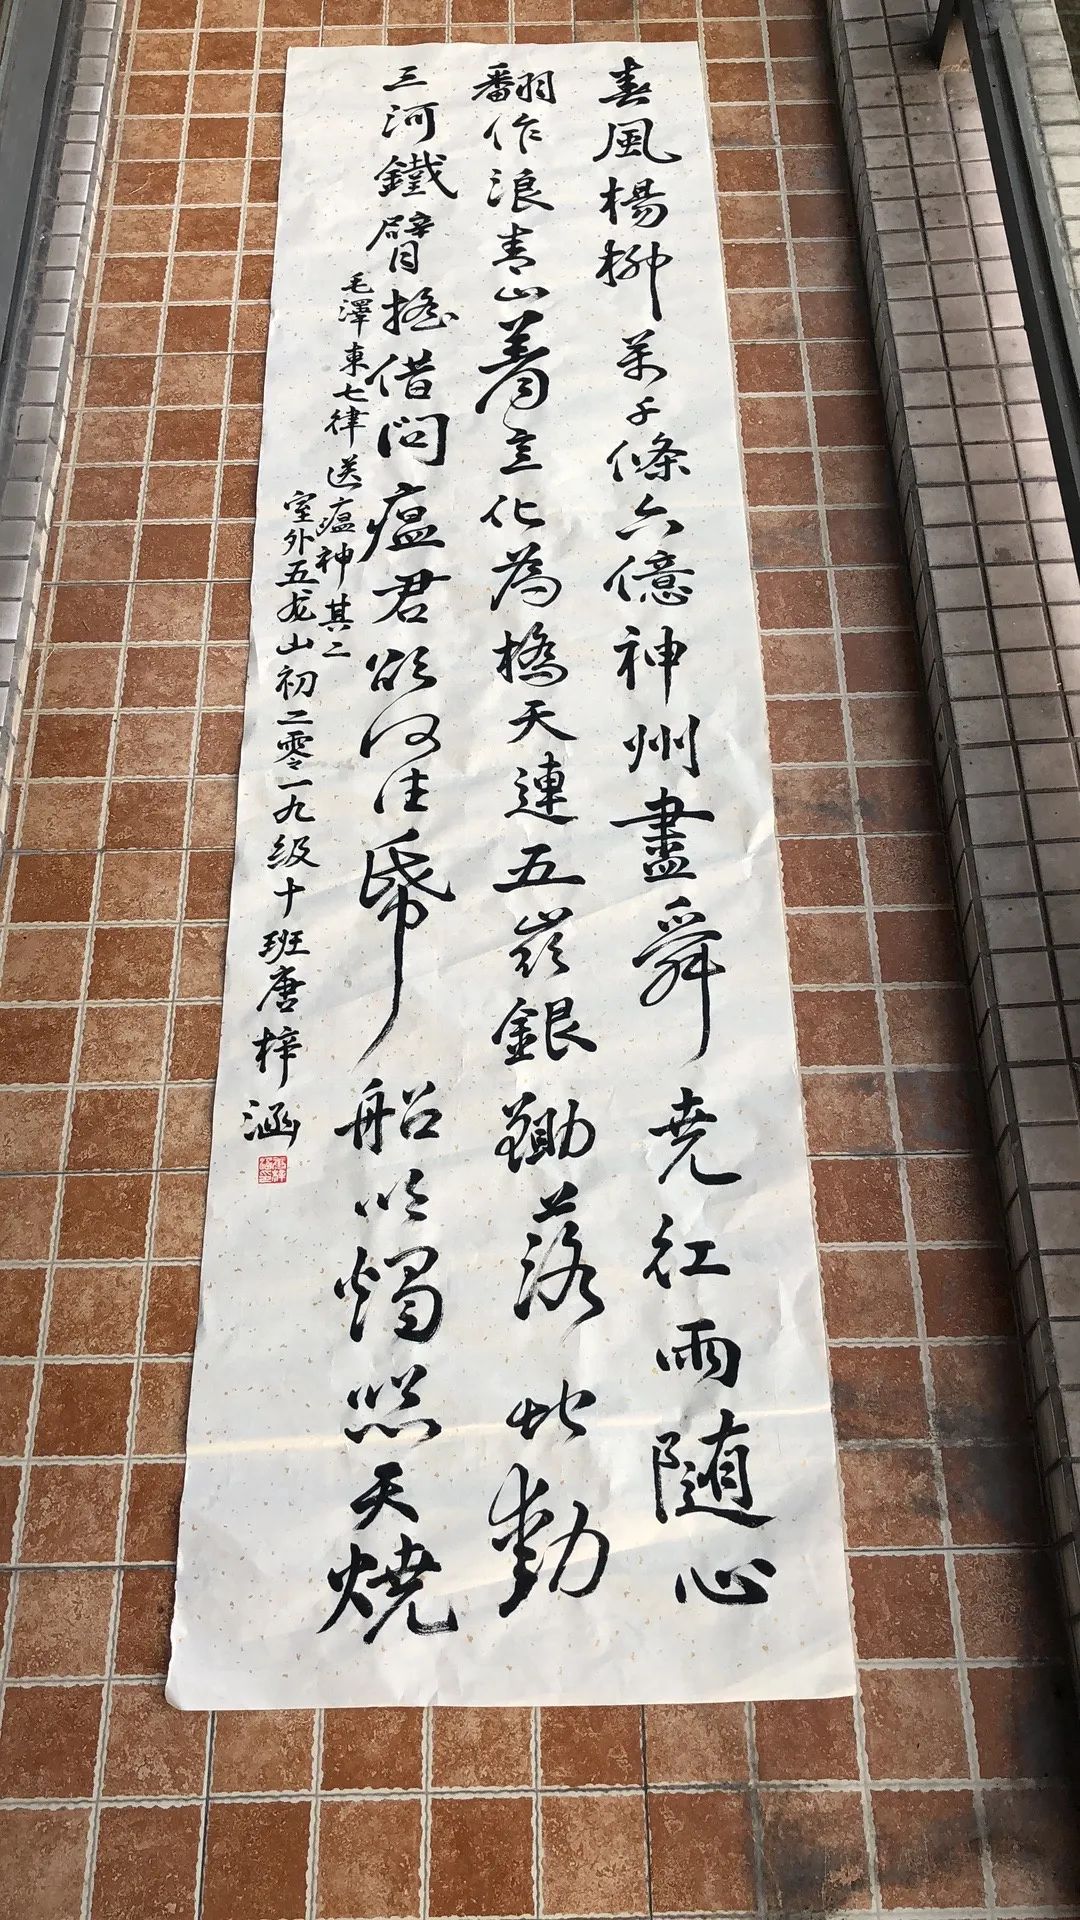 春風楊柳萬千條六億神州盡舜尧红雨随心
翻作浪青山着意化為橋天連五嶺銀鋤落地動
三河鐵臂摇借问瘟君欲何往纸船明燭照天燒
毛澤東七律送瘟神其二
室外五龙山初二零一九級十班唐梓涵